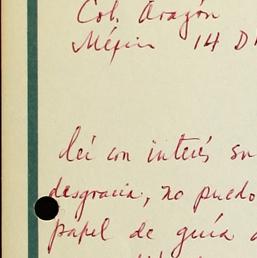 Col. Aragón
México 14 D
leí con interés su
desgracia, no puedo
papel de guía a